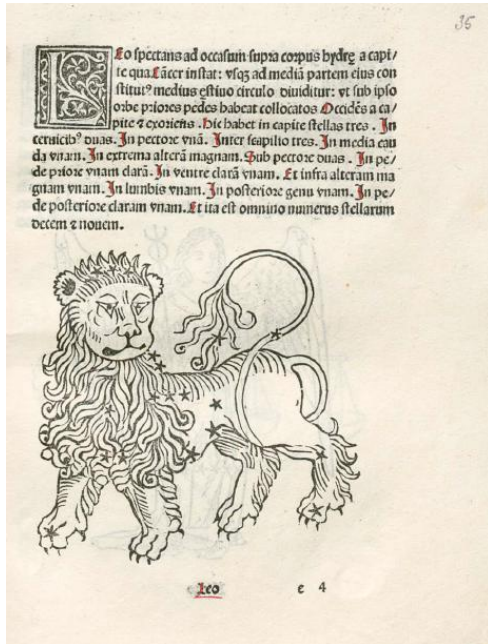 35
LEo spectans ad occasum supra corpus hydrę a capi/
te qua Cãcer instat: vsqȝ ad mediã partem eius con
stituitꝰ medius ęstiuo circulo diuiditur: vt sub ipso
orbe priores pedes habeat collocatos Occidẽs a ca/
pite ⁊ exoriẽs. Hic habet in capite stellas tres. In
ceruicibꝰ duas. In pectore vnã. Inter scapilio tres. In media cau
da vnam. In extrema alterã magnam. Sub pectore duas. In pe/
de priore vnam clarã. In ventre clarã vnam. Et infra alteram ma
gnam vnam. In lumbis vnam. In posteriore genu vnam. In pe/
de posteriore claram vnam. Et ita est omnino numerus stellarum
decem ⁊ nouem.
Leo
e 4